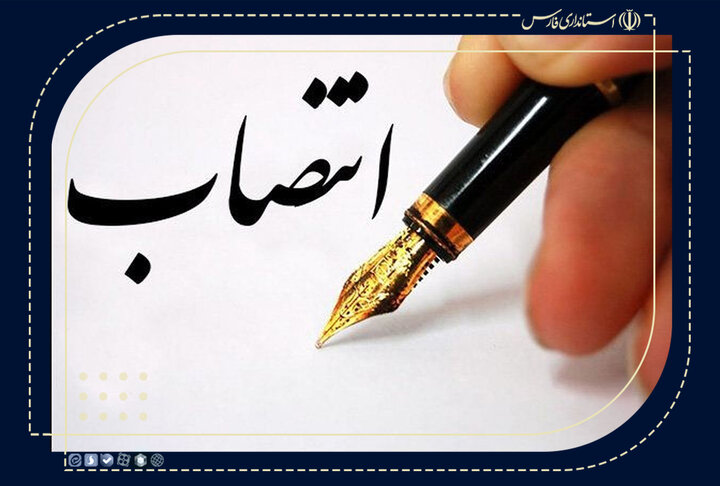 استانداری فارس
انتصاب